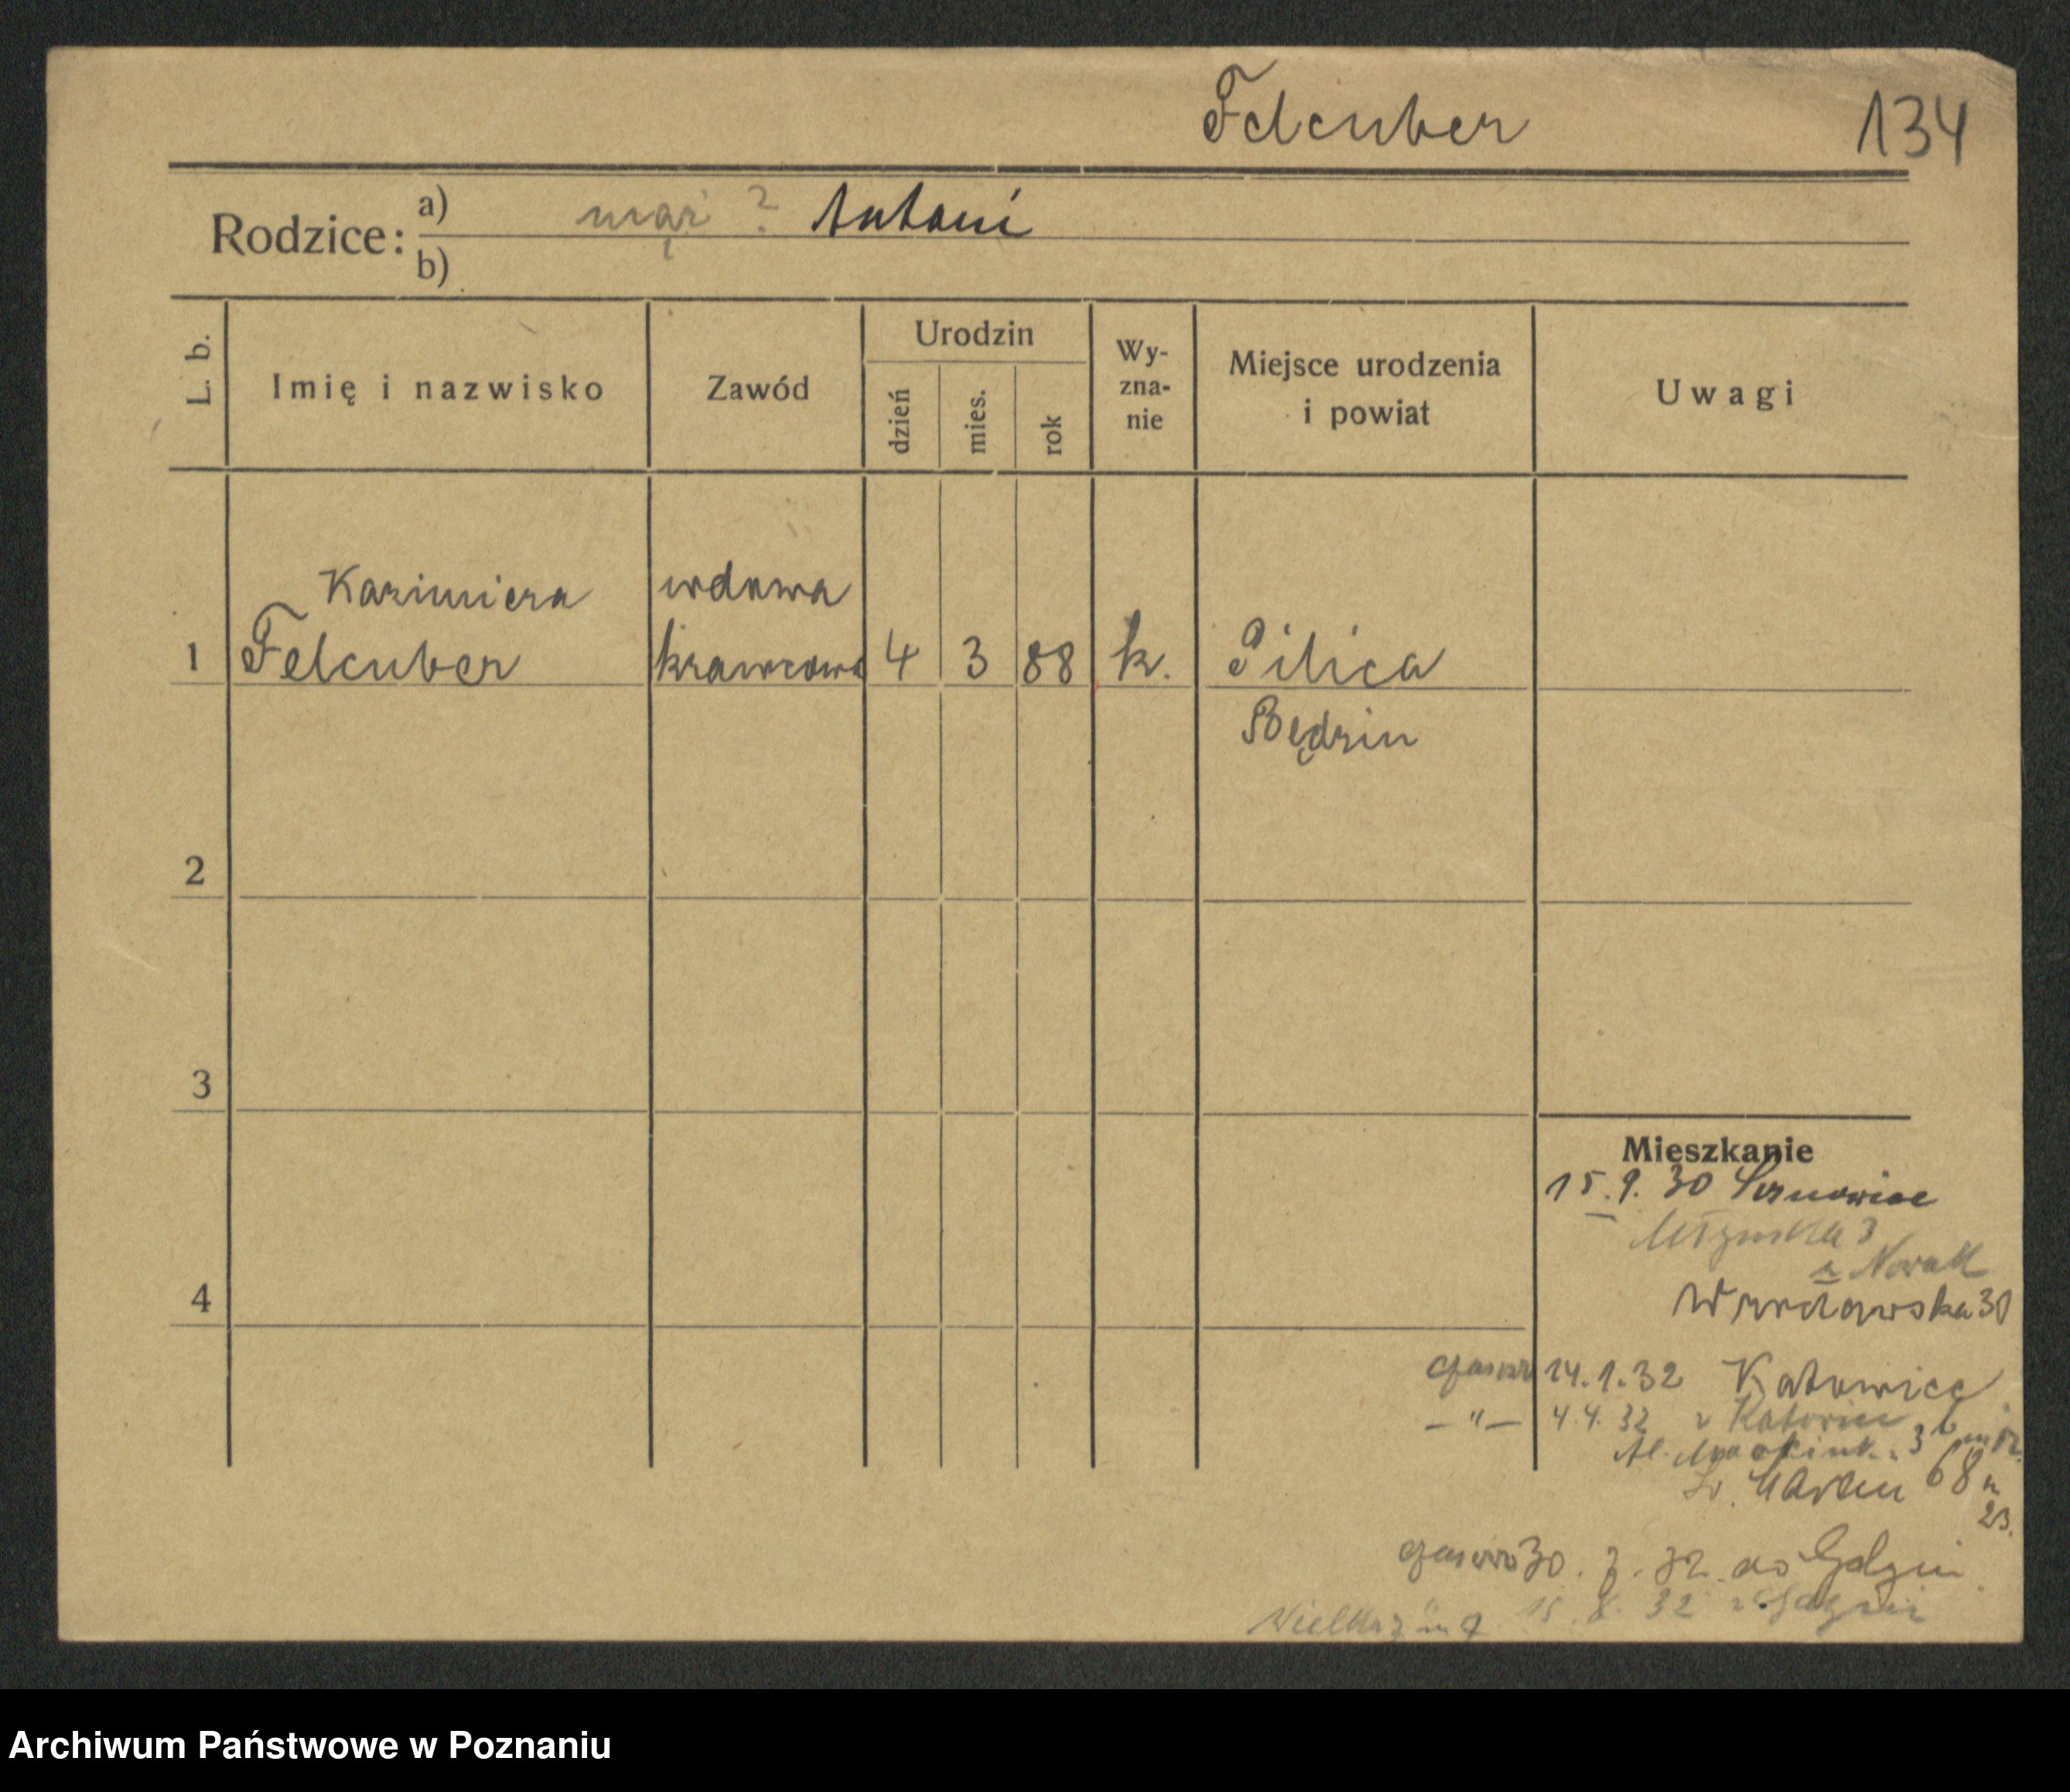 Felcuber 134
Rodzice:
a) mąż ? Antoni
b)
L. b.
Imię i nazwisko
Zawód
Urodzin
dzień
mies.
rok
Wy-
zna-
nie
Miejsce urodzenia
i powiat
Uwagi
Kazimiera wdowa
1 Felcuber krawcowa 4 3 88 k. Pilica
Będzin
2
3
4
Mieszkanie
15.9.30 Sosnowiec
3
Nowak
Wrocławska 30
14.1.32 Katowice
— " — 4.4.32 z Katowic
Al. Marcink. 3
Św. Marcin 68 m
23.
30.7.32 do Gdyni
15.8.32 z Gdyni
Archiwum Państwowe w Poznaniu